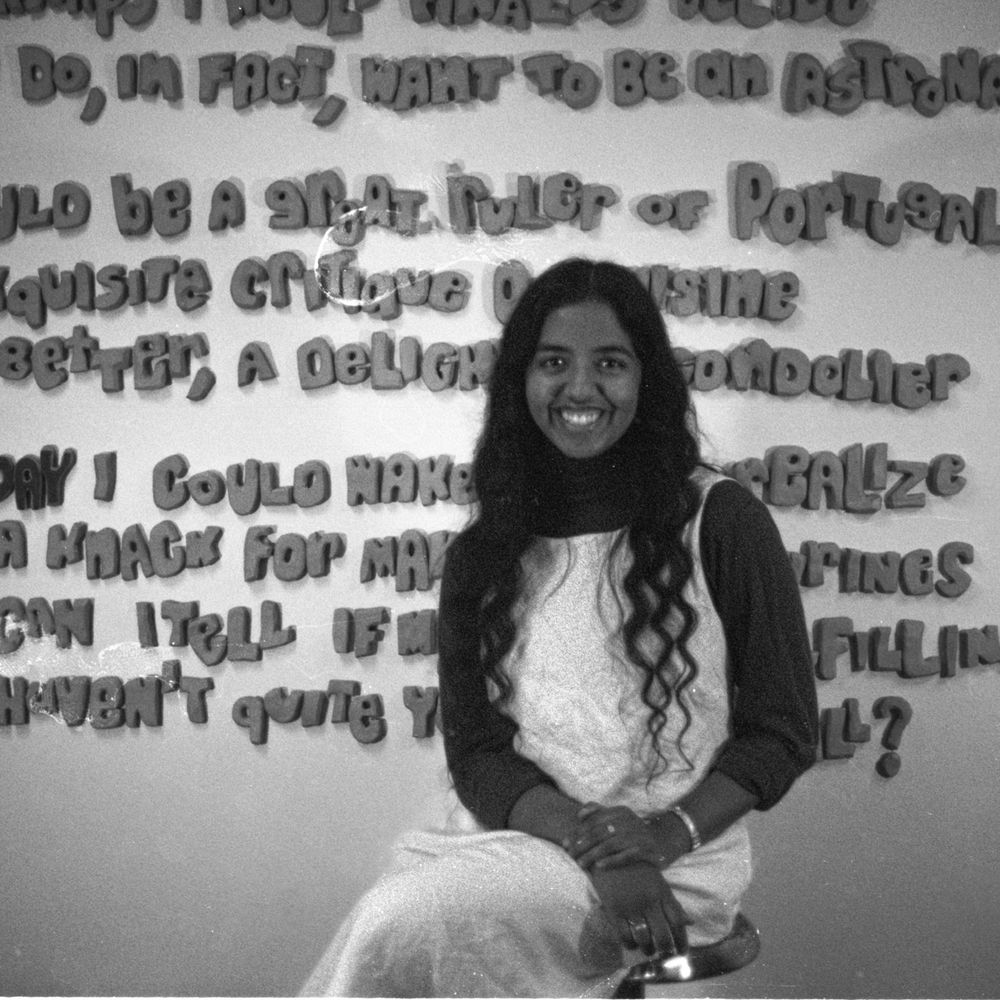 I COULD FINALLY DECIDE
DO, IN FACT, WANT TO BE AN ASTRONA
ULD be A GREAT rULer OF POrTUGAL
XQUISITE CrITIQUE CUISINE
BETTER, A DELIGH GONDOLIER
DAY I COULD WAKE REALIZE
A KNACK FOR MAK
CAN I TELL IF M FILLIN
HAVEN'T QUITE Y LL?